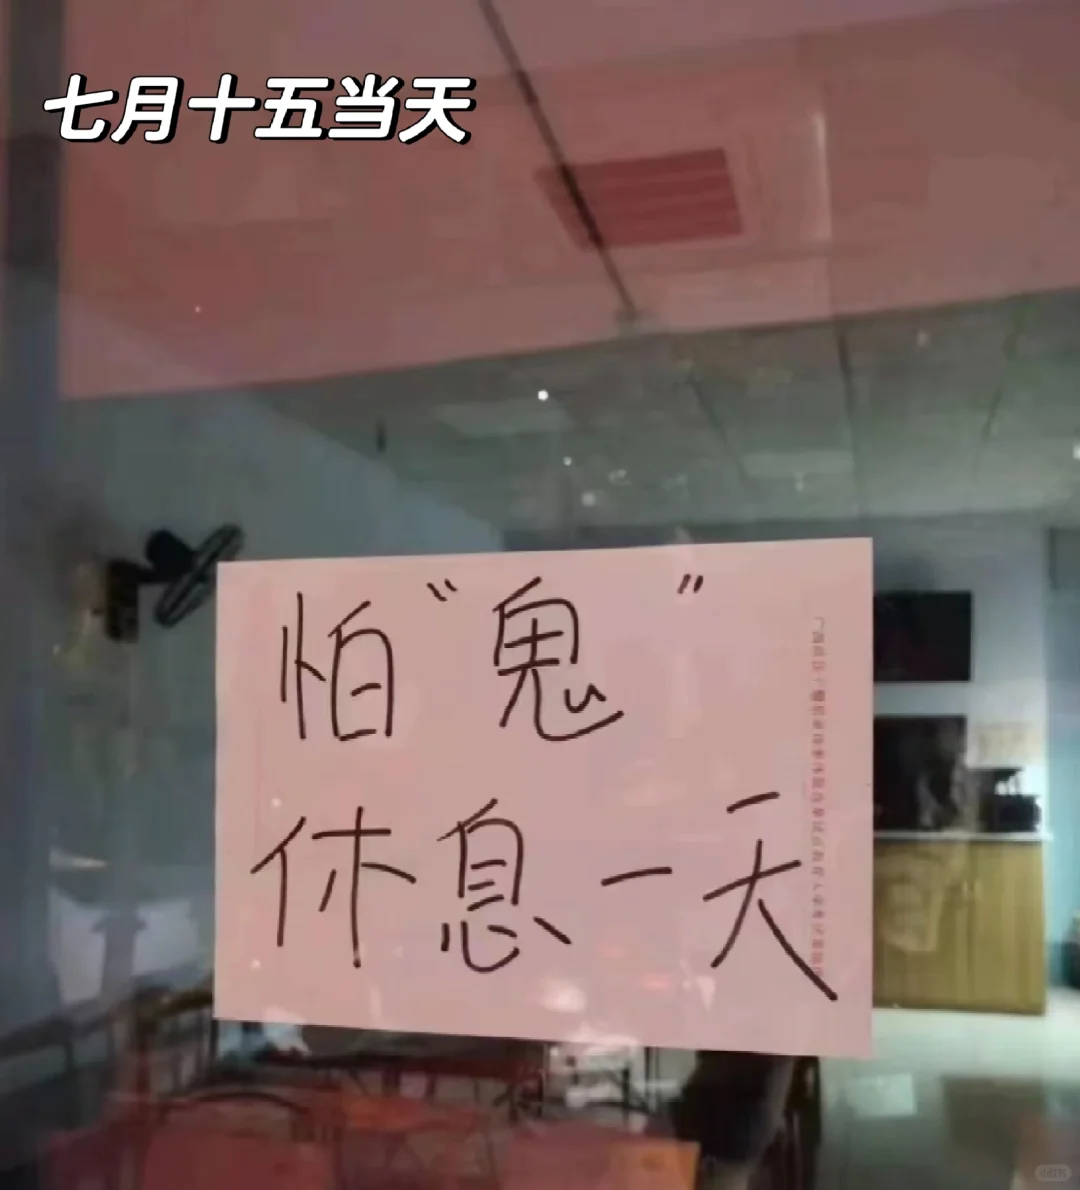 七月十五当天
怕“鬼”
休息一天